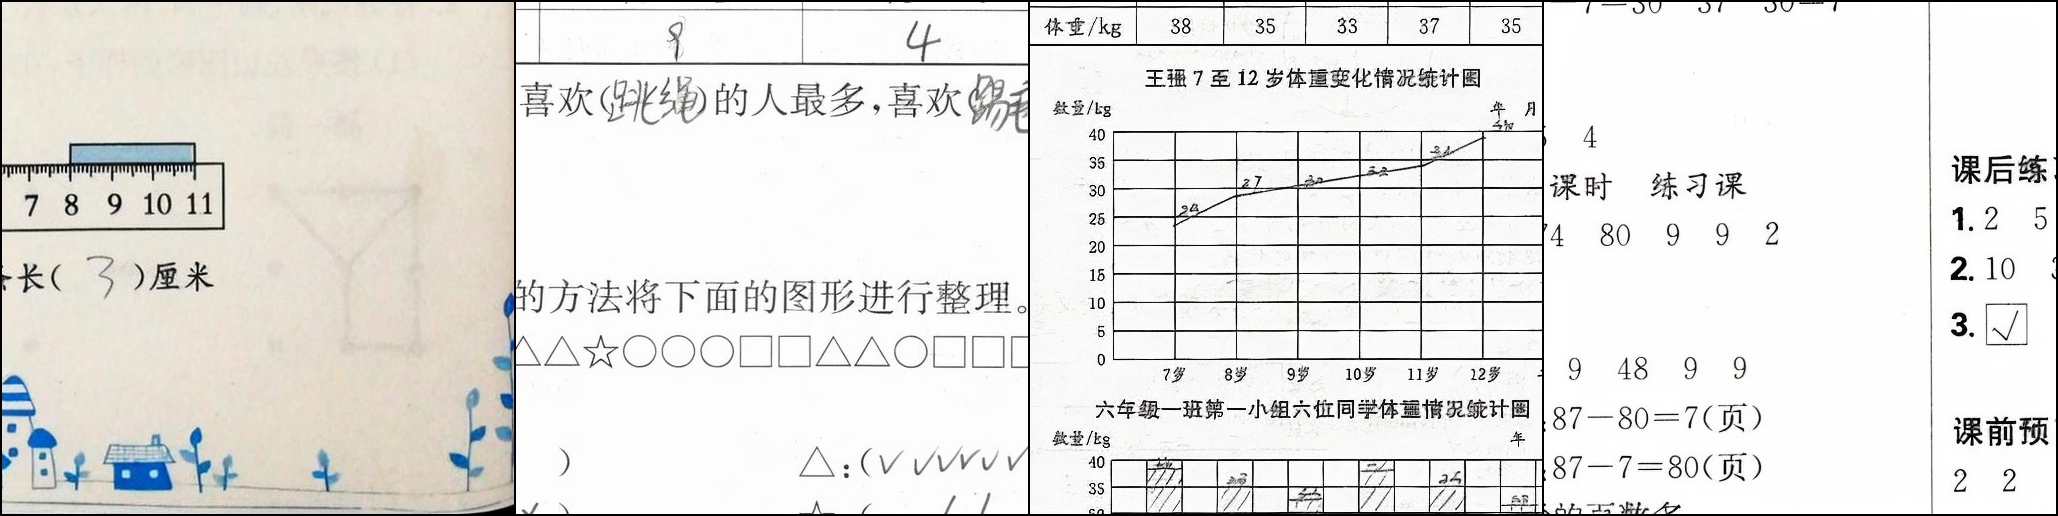 7 8 9 10 11
长( 3 )厘米
9 4
喜欢(跳绳)的人最多,喜欢(踢毛
的方法将下面的图形进行整理。
△△☆○○○□□△△○□□□
)
△:(√√√√√√
体重/kg 38 35 33 37 35
王珊7至12岁体重变化情况统计图
数量/kg
年 月
40
35
30
25
20
15
10
5
0
24 27 30 32 34
7岁 8岁 9岁 10岁 11岁 12岁
六年级一班第一小组六位同学体重情况统计图
数量/kg
年
40
35
4
课时 练习课
74 80 9 9 2
9 48 9 9
87－80＝7(页)
87－7＝80(页)
课后练
1. 2 5
2. 10
3. √
课前预
2 2